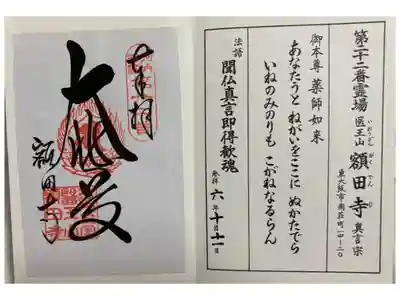 第二十二番霊場 医王山 額田寺 真言宗
いおうざん がくでんじ
東大阪市南荘町一四ー二〇
御本尊 薬師如来
あなたうと ねがいをここに ぬかたでら
いねのみのりも こがねなるらん
法語 聞仏真言即得歓魂
参拝 六年十月十一日
奉拝
額田寺